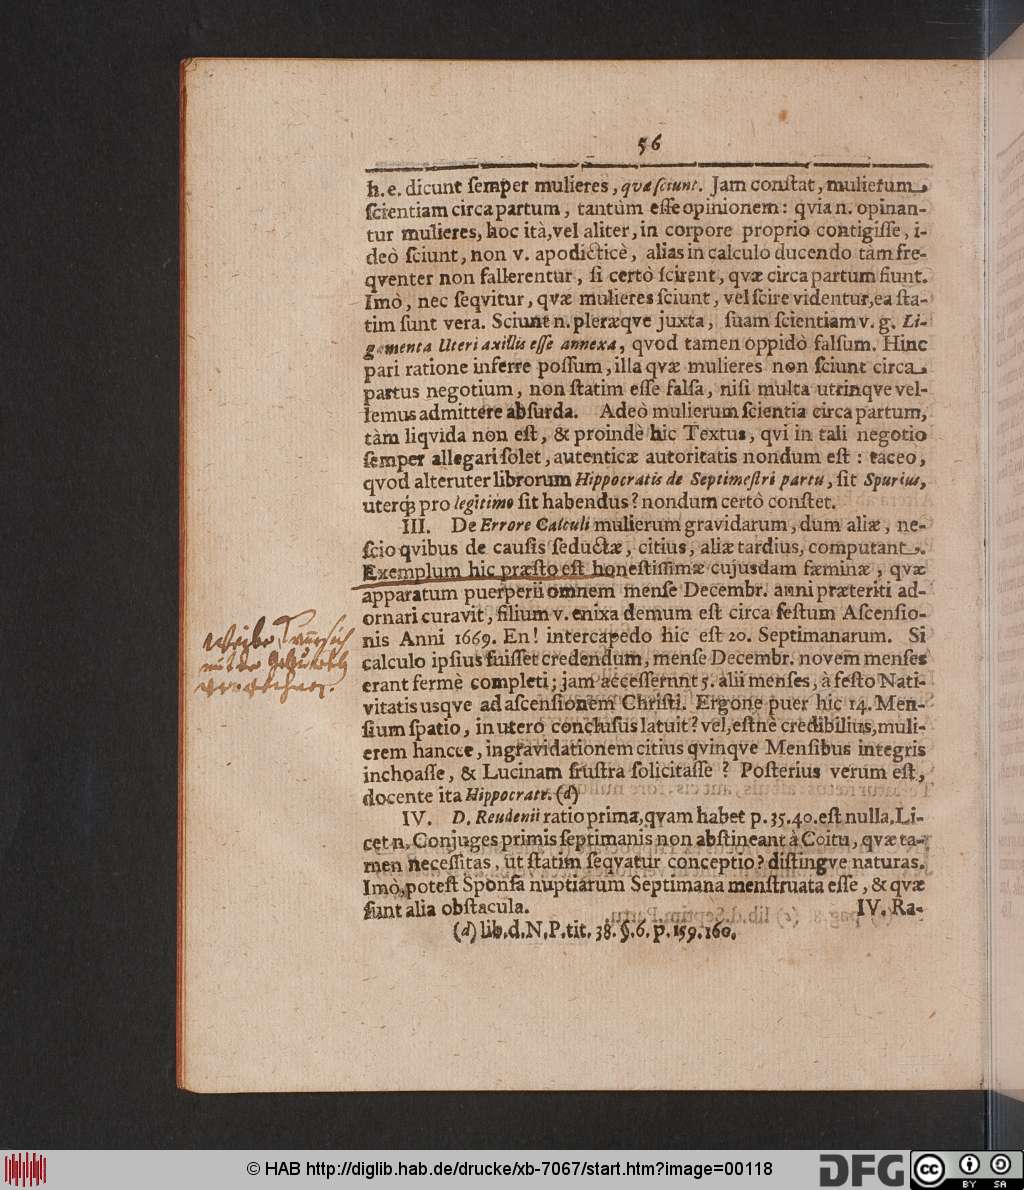 56
h. e. dicunt ſemper mulieres, quæ ſciunt. Jam conſtat, mulierum
ſcientiam circa partum, tantùm eſſe opinionem: qvia n. opinan-
tur mulieres, hoc ità, vel aliter, in corpore proprio contigiſſe, i-
deò ſciunt, non v. apodicticè, alias in calculo ducendo tàm fre-
qventer non fallerentur, ſi certò ſcirent, qvæ circa partum fiunt.
Imò, nec ſeqvitur, qvæ mulieres ſciunt, vel ſcire videntur, ea ſta-
tim ſunt vera. Sciunt n. pleræqve juxta, ſuam ſcientiam v. g. Li-
gamenta Uteri axillis eſſe annexa, qvod tamen oppidò falſum. Hinc
pari ratione inferre poſſum, illa qvæ mulieres non ſciunt circa
partus negotium, non ſtatim eſſe falſa, niſi multa utrinqve vel-
lemus admittere abſurda. Adeò mulierum ſcientia circa partum,
tàm liqvida non eſt, & proindè hic Textus, qvi in tali negotio
ſemper allegari ſolet, autenticæ autoritatis nondum eſt: taceo,
qvod alteruter librorum Hippocratis de Septimeſtri partu, ſit Spurius,
uterq; pro legitimo ſit habendus? nondum certò conſtet.
III. De Errore Calculi mulierum gravidarum, dum aliæ, ne-
ſcio qvibus de cauſis ſeductæ, citius, aliæ tardius, computant.
Exemplum hic præſto eſt honeſtiſſimæ cujusdam fæminæ, qvæ
apparatum puerperii omnem menſe Decembr. anni præteriti ad-
ornari curavit, filium v. enixa demum eſt circa feſtum Aſcenſio-
nis Anni 1669. En! intercapedo hic eſt 20. Septimanarum. Si
calculo ipſius fuiſſet credendum, menſe Decembr. novem menſes
erant fermè completi; jam acceſſerunt 5. alii menſes, à feſto Nati-
vitatis usqve ad aſcenſionem Chriſti. Ergone puer hic 14. Men-
ſium ſpatio, in utero concluſus latuit? vel, eſtnè credibilius, muli-
erem hancce, ingravidationem citius qvinqve Menſibus integris
inchoaſſe, & Lucinam fruſtra ſolicitaſſe? Poſterius verum eſt,
docente ita Hippocrate. (d)
IV. D. Reudenii ratio prima, qvam habet p. 35. 40. eſt nulla, Li-
cet n. Conjuges primis ſeptimanis non abſtineant à Coitu, qvæ ta-
men neceſſitas, ut ſtatim ſeqvatur conceptio? diſtingve naturas.
Imò, poteſt Sponſa nuptiarum Septimana menſtruata eſſe, & qvæ
ſunt alia obſtacula. IV. Ra-
(d) lib. d. N. P. tit. 38. §. 6. p. 159. 160.
© HAB http://diglib.hab.de/drucke/xb-7067/start.htm?image=00118
DFG
cc BY SA